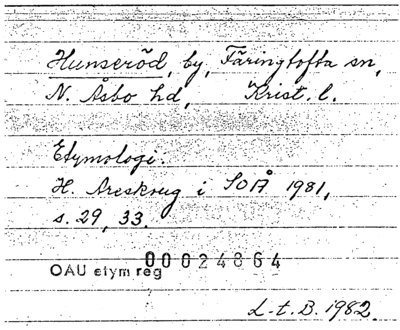 Hunseröd, by, Färingtofta sn,
N. Åsbo hd, Krist. l.
Etymologi.
H. Areskoug i SOÅ 1981,
s. 29, 33.
00024864
OAU etym reg
L-t. B. 1982